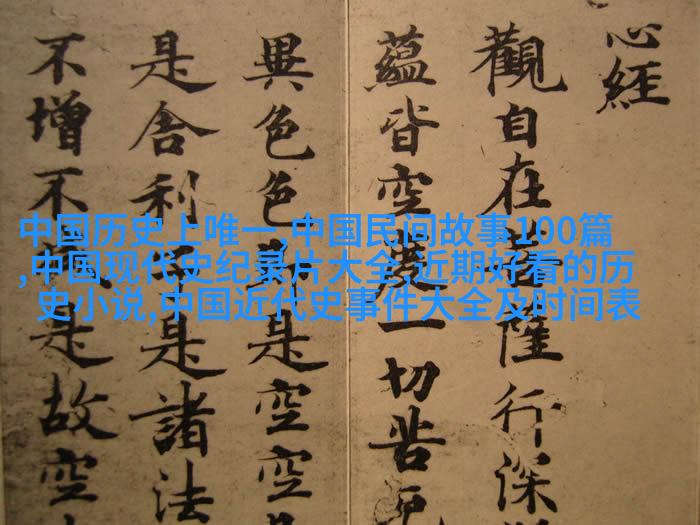 心經
觀自在菩薩行深
蘊皆空度一切苦厄
異色色即是空空
是舍利子是諸法
不增不減是故空
中国历史上唯一,中国民间故事100篇
,中国现代史纪录片大全,近期好看的历
史小说,中国近代史事件大全及时间表